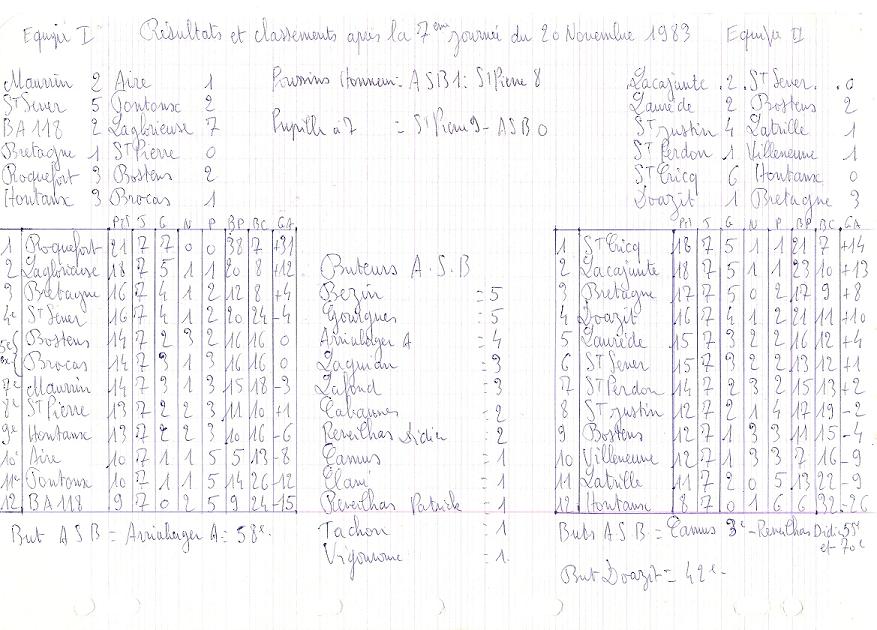 Equipe I Résultats et classements après la 7eme journée du 20 Novembre 1983 Equipe II
Maurrin 2 Aire 1
St Sever 5 Pontonx 2
BA 118 2 Laglorieuse 7
Bretagne 1 St Pierre 0
Roquefort 3 Bostens 2
Hontanx 3 Brocas 1
Poussins Honneur: ASB 1: St Pierre 8
Pupille à 7 = St Pierre 9 - ASB 0
Lacajunte 2 St Sever 0
Lauréde 2 Bostens 2
St Justin 4 Latrille 1
St Perdon 1 Villeneuve 1
St Cricq 6 Hontanx 0
Doazit 1 Bretagne 3
Pts J G N P BP BC GA
1 Roquefort 21 7 7 0 0 38 7 +31
2 Laglorieuse 18 7 5 1 1 20 8 +12
3 Bretagne 16 7 4 1 2 12 8 +4
4e St Sever 16 7 4 1 2 20 24 -4
5e ex Bostens 14 7 2 3 2 16 16 0
Brocas 14 7 3 1 3 16 16 0
7e Maurrin 14 7 3 1 3 15 18 -3
8e St Pierre 13 7 2 2 3 11 10 +1
9e Hontanx 13 7 2 2 3 10 16 -6
10e Aire 10 7 1 1 5 5 13 -8
11e Pontonx 10 7 1 1 5 14 26 -12
12 BA 118 9 7 0 2 5 9 24 -15
But ASB = Arrialerger A = 58e.
Buteurs A.S.B
Bezin = 5
Gourgues = 5
Arrialerger A = 4
Laguian = 3
Lafond = 3
Cabannes = 2
Reveilhas Didier = 2
Camus = 1
Clavé = 1
Reveilhas Patrick = 1
Tachon = 1
= 1
Pts J G N P BP BC GA
1 St Cricq 18 7 5 1 1 21 7 +14
2 Lacajunte 18 7 5 1 1 23 10 +13
3 Bretagne 17 7 5 0 2 17 9 +8
4 Doazit 16 7 4 1 2 21 11 +10
5 Lauréde 15 7 3 2 2 16 12 +4
6 St Sever 15 7 3 2 2 13 12 +1
7 St Perdon 14 7 2 3 2 15 13 +2
8 St Justin 12 7 2 1 4 17 19 -2
9 Bostens 12 7 1 3 3 11 15 -4
10 Villeneuve 12 7 1 3 3 7 16 -9
11 Latrille 11 7 2 0 5 13 22 -9
12 Hontanx 8 7 0 1 6 6 32 -26
Buts ASB = Camus 3e - Reveilhas Didier 55e et 70e
But Doazit = 42e.